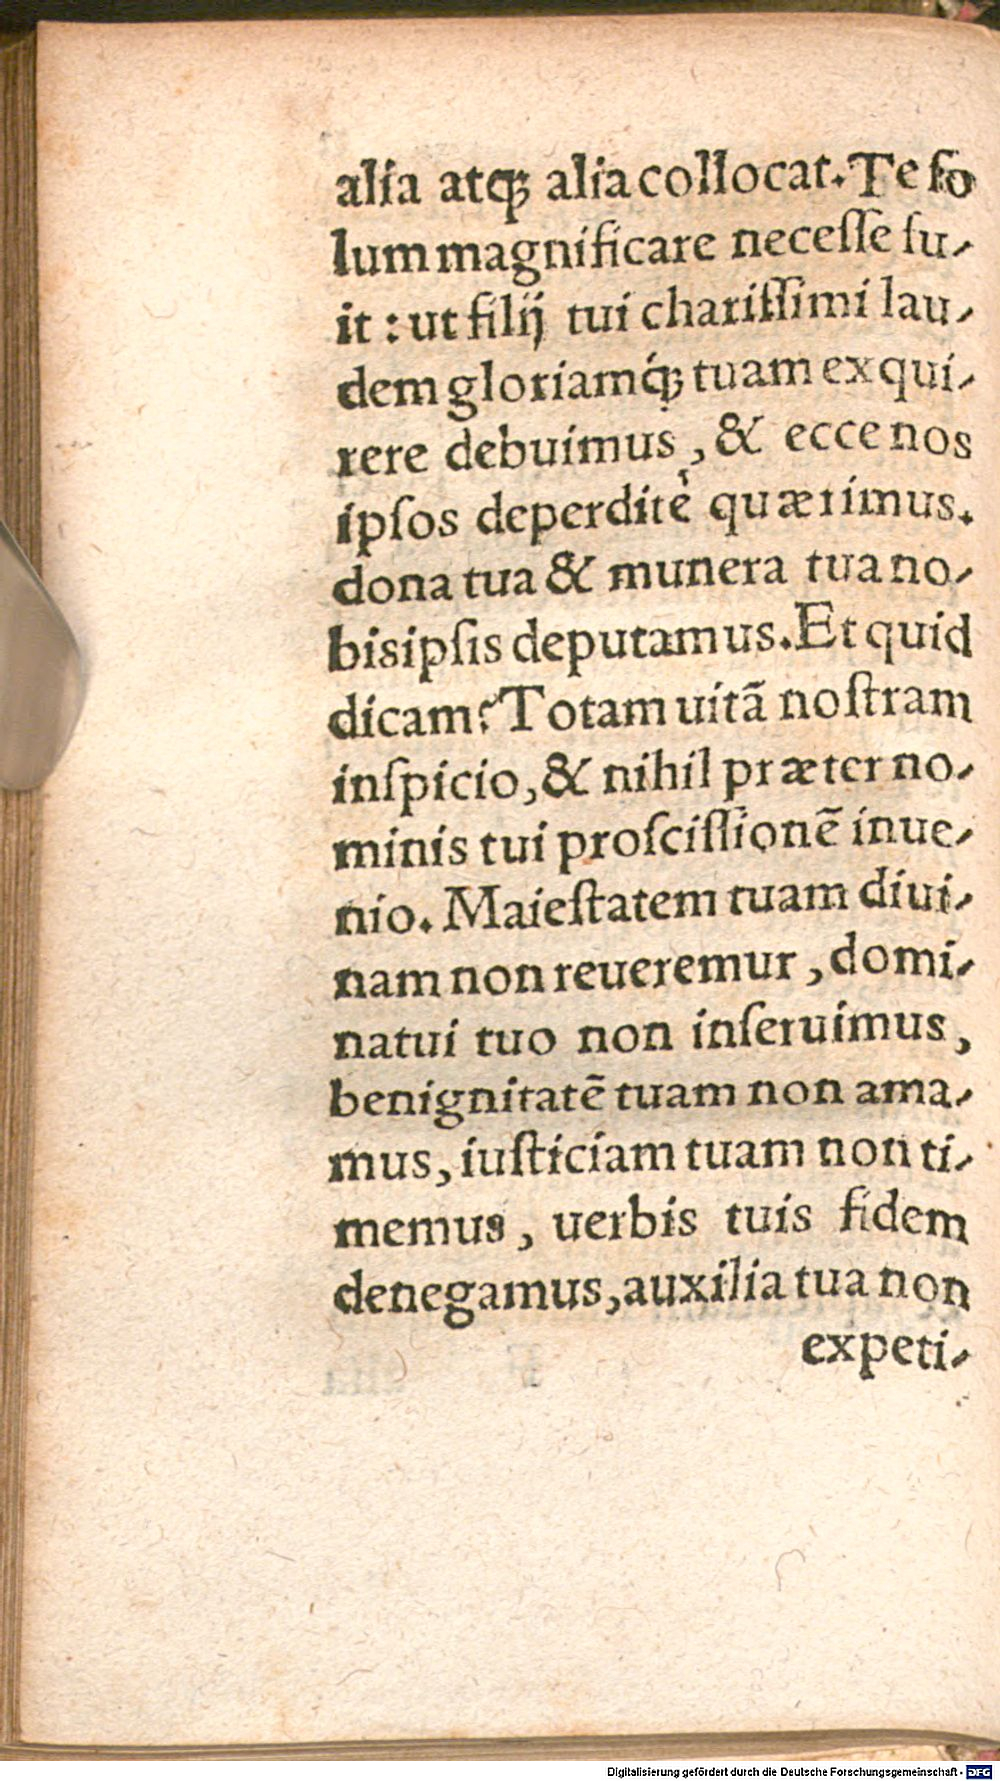 alia atqꝫ alia collocat. Te ſo
lum magnificare neceſſe fu⸗
it : ut filij tui chariſſimi lau⸗
dem gloriamq́ꝫ tuam exqui⸗
rere debuimus , & ecce nos
ipſos deperditè quærimus.
dona tua & munera tua no⸗
bisipſis deputamus. Et quid
dicam? Totam uitã noſtram
inſpicio, & nihil præter no⸗
minis tui proſciſſionẽ inue⸗
nio. Maieſtatem tuam diui⸗
nam non reueremur , domi⸗
natui tuo non inſeruimus ,
benignitatẽ tuam non ama⸗
mus, iuſticiam tuam non ti⸗
memus , uerbis tuis fidem
denegamus, auxilia tua non
expeti⸗
Digitalisierung gefördert durch die Deutsche Forschungsgemeinschaft - DFG